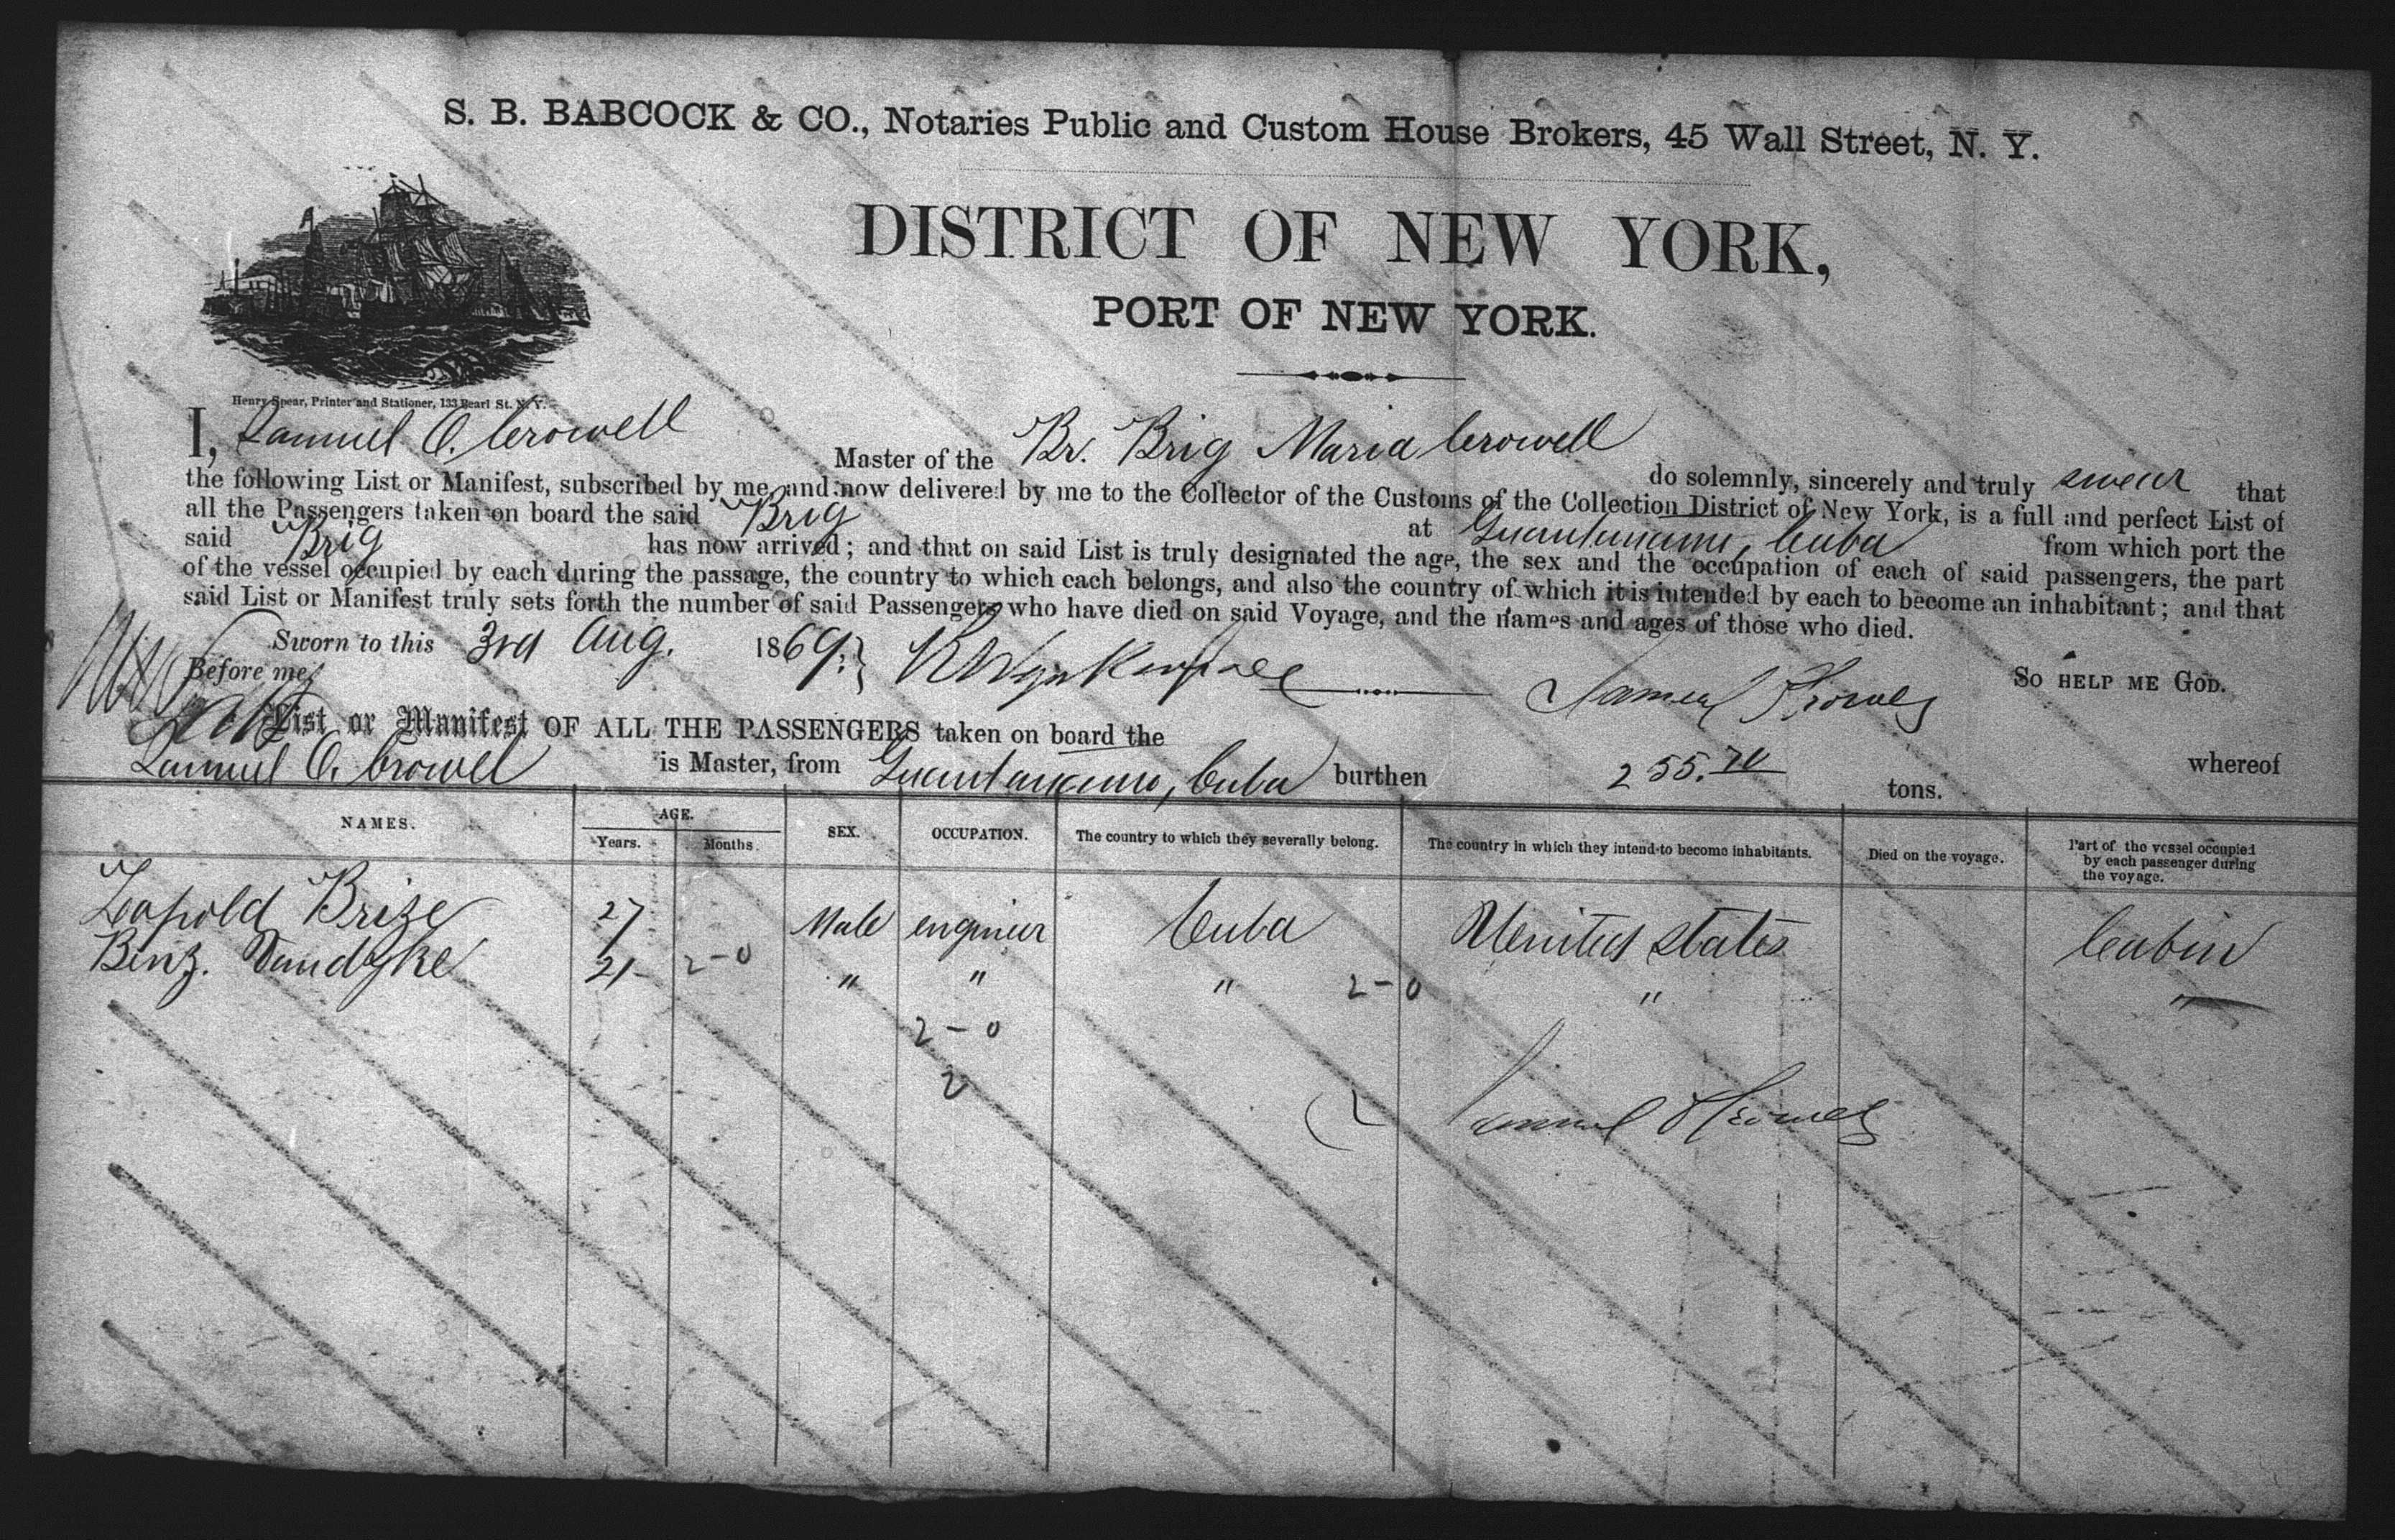 S. B. BABCOCK & CO., Notaries Public and Custom House Brokers, 45 Wall Street, N. Y.
DISTRICT OF NEW YORK,
PORT OF NEW YORK.
Henry Spear, Printer and Stationer, 133 Pearl St. N. Y.
I, Samuel O. Crowell Master of the Br. Brig Maria Crowell do solemnly, sincerely and truly swear that
the following List or Manifest, subscribed by me, and now delivered by me to the Collector of the Customs of the Collection District of New York, is a full and perfect List of
all the Passengers taken on board the said Brig at Guantanamo, Cuba from which port the
said Brig has now arrived; and that on said List is truly designated the age, the sex and the occupation of each of said passengers, the part
of the vessel occupied by each during the passage, the country to which each belongs, and also the country of which it is intended by each to become an inhabitant; and that
said List or Manifest truly sets forth the number of said Passengers who have died on said Voyage, and the names and ages of those who died.
Sworn to this 3rd Aug. 1869.
So HELP ME GOD.
Before me,
Samuel O Crowell
List or Manifest OF ALL THE PASSENGERS taken on board the whereof
Samuel O. Crowell is Master, from Guantanamo, Cuba burthen 255.70 tons.
NAMES. AGE. Years. Months. SEX. OCCUPATION. The country to which they severally belong. The country in which they intend to become inhabitants. Died on the voyage. Part of the vessel occupied by each passenger during the voyage.
Leopold Brize 27 Male engineer Cuba United States Cabin
Benz. Vandyke 21 2-0 " " " 2-0 " "
2-0
2
Samuel O Crowell